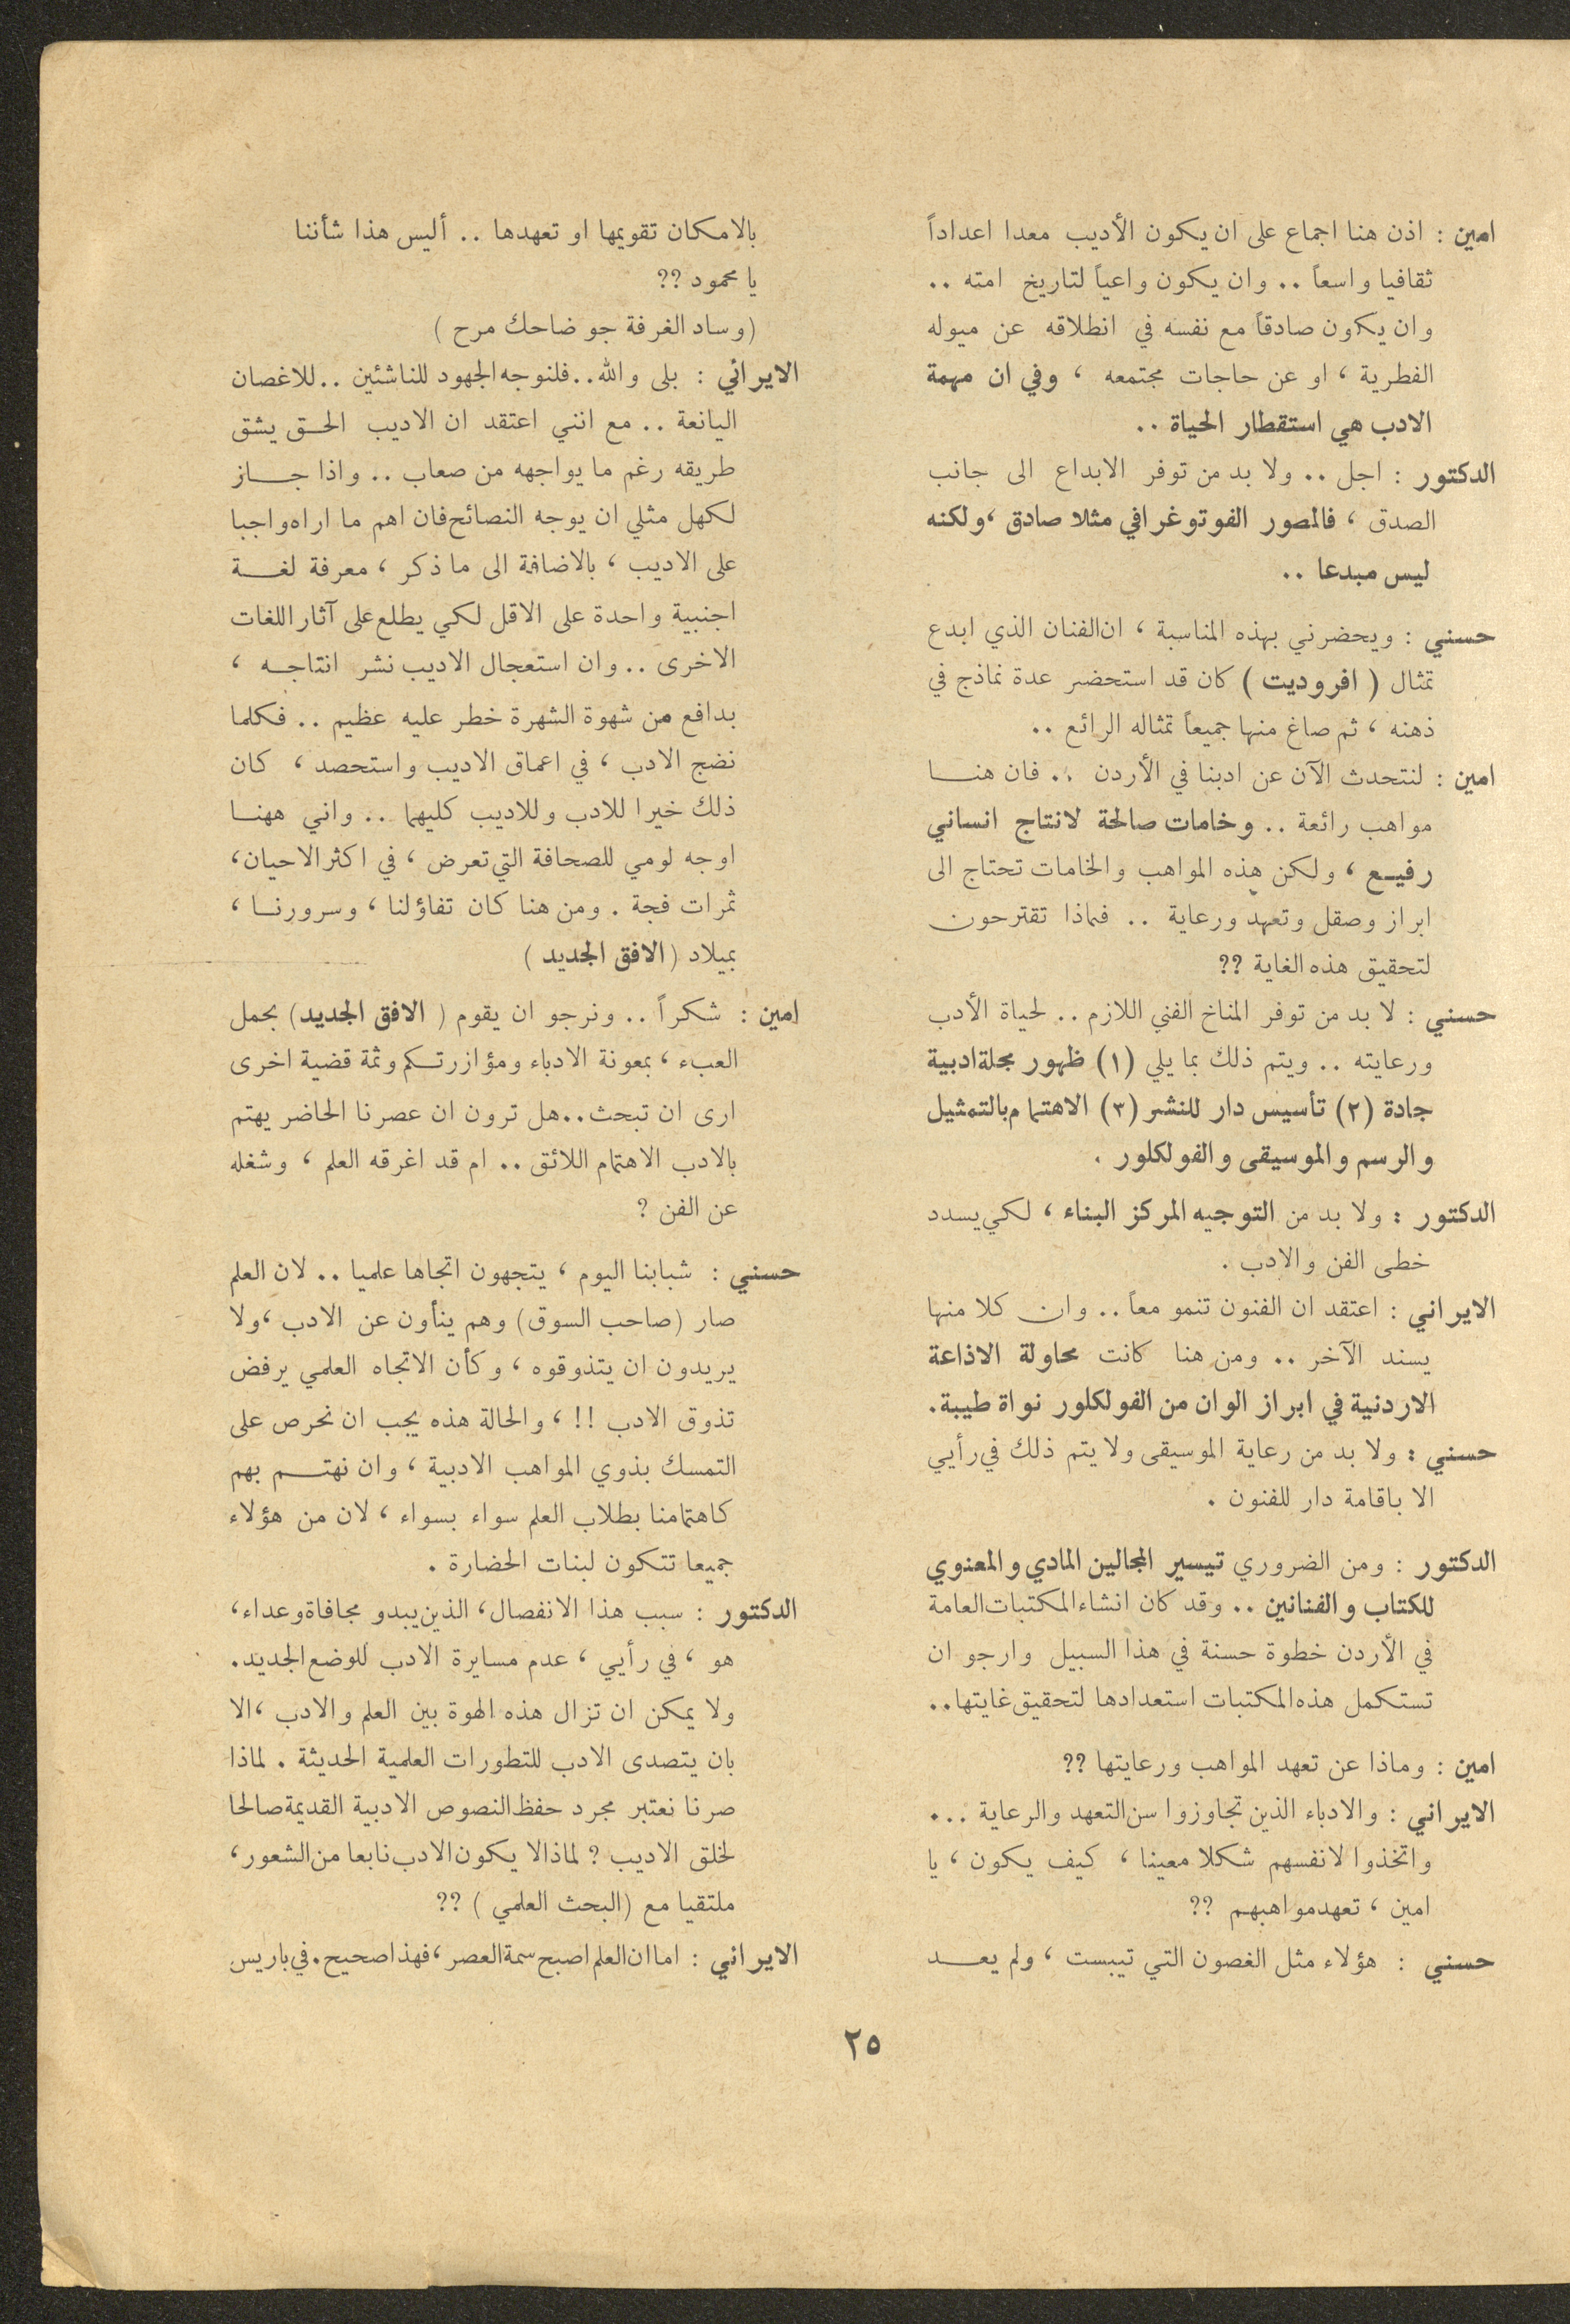 امين : اذن هنا اجماع على ان يكون الأديب معدا اعداداً
ثقافيا واسعاً .. وان يكون واعياً لتاريخ امته ..
وان يكون صادقاً مع نفسه في انطلاقه عن ميوله
الفطرية ، او عن حاجات مجتمعه ، وفي ان مهمة
الادب هي استقطار الحياة ..
الدكتور : اجل .. ولا بد من توفر الابداع الى جانب
الصدق ، فالمصور الفوتوغرافي مثلا صادق ، ولكنه
ليس مبدعا ..
حسني : ويحضرني بهذه المناسبة ، ان الفنان الذي ابدع
تمثال ( افروديت ) كان قد استحضر عدة نماذج في
ذهنه ، ثم صاغ منها جميعاً تمثاله الرائع ..
امين : لنتحدث الآن عن ادبنا في الأردن .. فان هنا
مواهب رائعة .. وخامات صالحة لانتاج انساني
رفيع ، ولكن هذه المواهب والخامات تحتاج الى
ابراز وصقل وتعهد ورعاية .. فماذا تقترحون
لتحقيق هذه الغاية ??
حسني : لا بد من توفر المناخ الفني اللازم .. لحياة الأدب
ورعايته .. ويتم ذلك بما يلي (١) ظهور مجلة ادبية
جادة (٢) تأسيس دار للنشر (٣) الاهتمام بالتمثيل
والرسم والموسيقى والفولكلور .
الدكتور : ولا بد من التوجيه المركز البناء ، لكي يسدد
خطى الفن والادب .
الايراني : اعتقد ان الفنون تنمو معاً .. وان كلا منها
يسند الآخر .. ومن هنا كانت محاولة الاذاعة
الاردنية في ابراز الوان من الفولكلور نواة طيبة .
حسني : ولا بد من رعاية الموسيقى ولا يتم ذلك في رأيي
الا باقامة دار للفنون .
الدكتور : ومن الضروري تيسير المجالين المادي والمعنوي
للكتاب والفنانين .. وقد كان انشاء المكتبات العامة
في الأردن خطوة حسنة في هذا السبيل وارجو ان
تستكمل هذه المكتبات استعدادها لتحقيق غايتها ..
امين : وماذا عن تعهد المواهب ورعايتها ??
الايراني : والادباء الذين تجاوزوا سن التعهد والرعاية ...
واتخذوا لانفسهم شكلا معينا ، كيف يكون ، يا
امين ، تعهد مواهبهم ??
حسني : هؤلاء مثل الغصون التي تيبست ، ولم يعد
بالامكان تقويمها او تعهدها .. أليس هذا شأننا
يا محمود ??
(وساد الغرفة جو ضاحك مرح )
الايراني : بلى والله .. فلنوجه الجهود للناشئين .. للاغصان
اليانعة .. مع انني اعتقد ان الاديب الحق يشق
طريقه رغم ما يواجهه من صعاب .. واذا جاز
لكهل مثلي ان يوجه النصائح فان اهم ما اراه واجبا
على الاديب ، بالاضافة الى ما ذكر ، معرفة لغة
اجنبية واحدة على الاقل لكي يطلع على آثار اللغات
الاخرى .. وان استعجال الاديب نشر انتاجه ،
بدافع من شهوة الشهرة خطر عليه عظيم .. فكلما
نضج الادب ، في اعماق الاديب واستحصد ، كان
ذلك خيرا للادب وللاديب كليهما .. واني ههنا
اوجه لومي للصحافة التي تعرض ، في اكثر الاحيان ،
ثمرات فجة . ومن هنا كان تفاؤلنا ، وسرورنا ،
بميلاد (الافق الجديد )
امين : شكراً .. ونرجو ان يقوم ( الافق الجديد) بحمل
العبء ، بمعونة الادباء ومؤازرتكم وثمة قضية اخرى
ارى ان تبحث .. هل ترون ان عصرنا الحاضر يهتم
بالادب الاهتمام اللائق .. ام قد اغرقه العلم ، وشغله
عن الفن ?
حسني : شبابنا اليوم ، يتجهون اتجاها علميا .. لان العلم
صار (صاحب السوق) وهم ينأون عن الادب ، ولا
يريدون ان يتذوقوه ، وكأن الاتجاه العلمي يرفض
تذوق الادب !! ، والحالة هذه يجب ان نحرص على
التمسك بذوي المواهب الادبية ، وان نهتم بهم
كاهتمامنا بطلاب العلم سواء بسواء ، لان من هؤلاء
جميعا تتكون لبنات الحضارة .
الدكتور : سبب هذا الانفصال ، الذين يبدو مجافاة وعداء ،
هو ، في رأيي ، عدم مسايرة الادب للوضع الجديد .
ولا يمكن ان تزال هذه الهوة بين العلم والادب ، الا
بان يتصدى الادب للتطورات العلمية الحديثة . لماذا
صرنا نعتبر مجرد حفظ النصوص الادبية القديمة صالحا
لخلق الاديب ? لماذا لا يكون الادب نابعا من الشعور ،
ملتقيا مع (البحث العلمي ) ??
الايراني : اما ان العلم اصبح سمة العصر ، فهذا صحيح . في باريس
٢٥